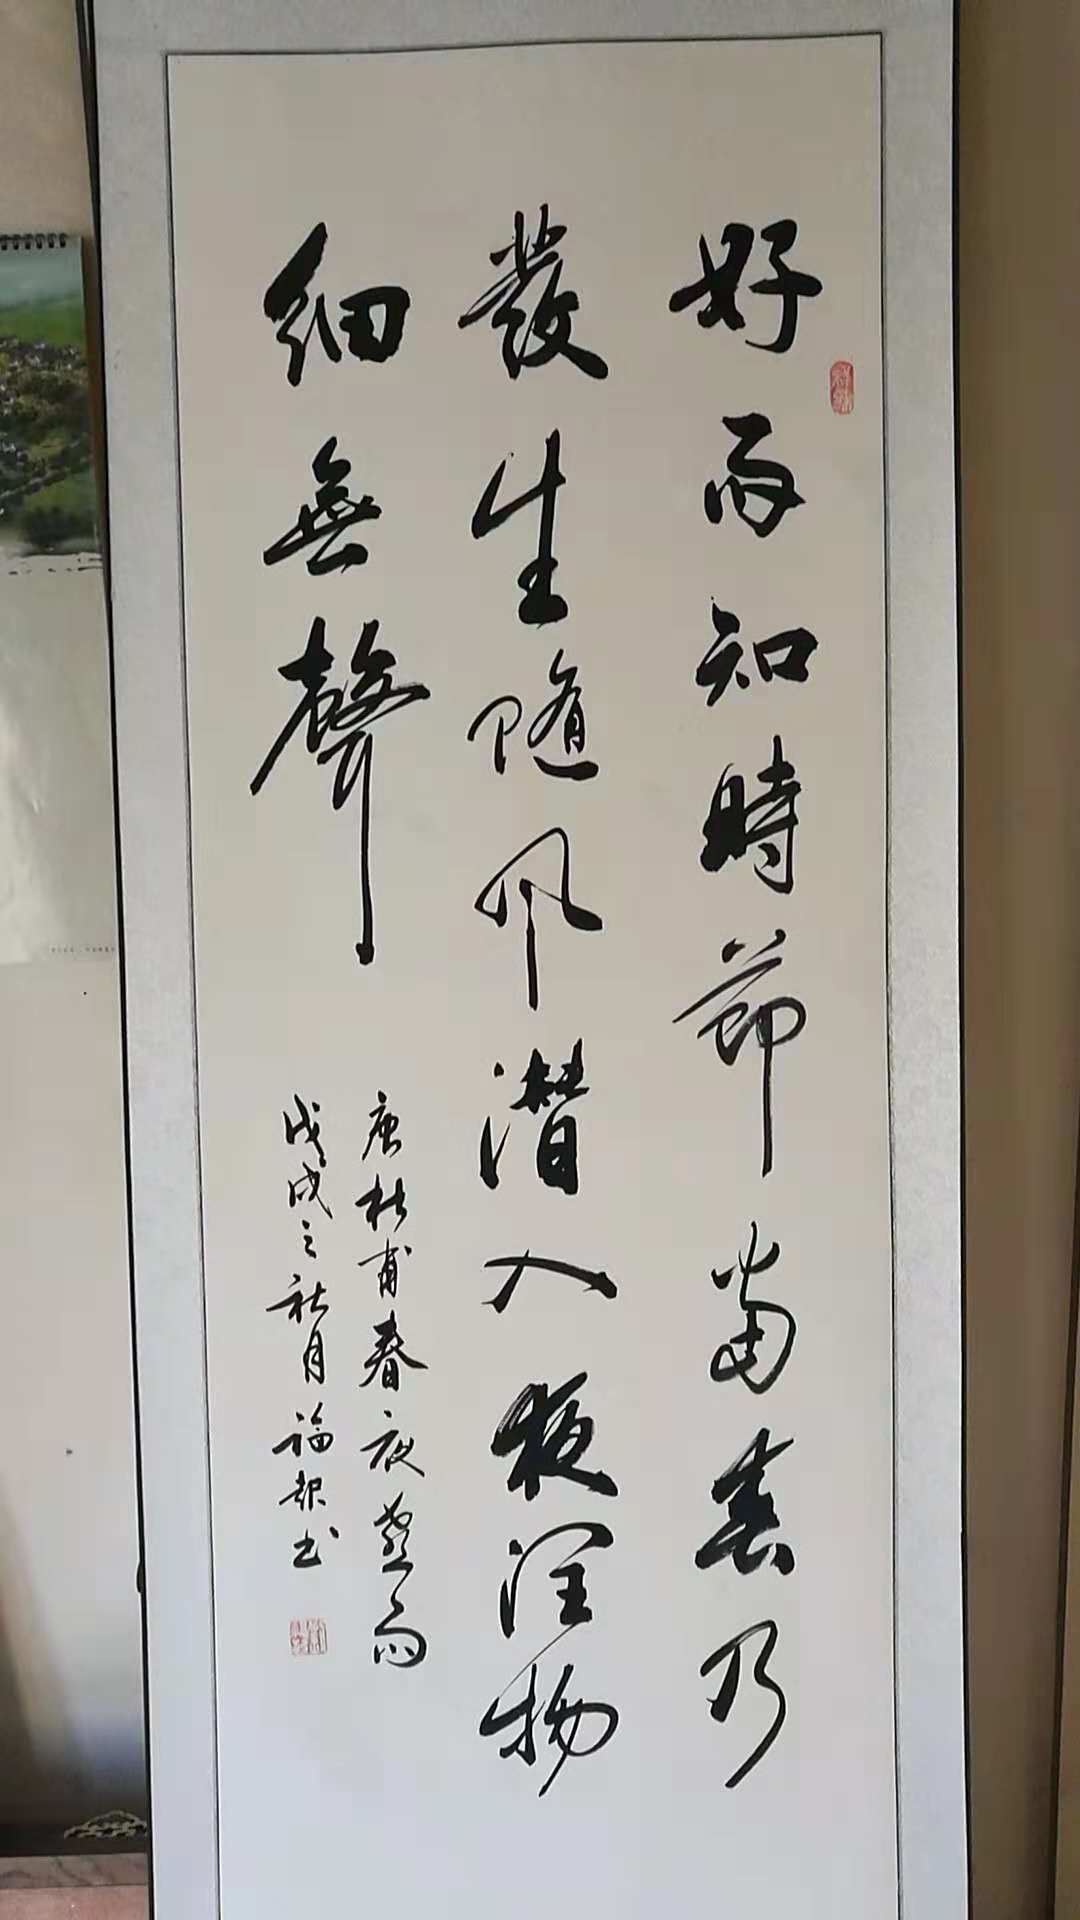 好雨知時節當春乃
發生隨风潛入夜潤物
細無聲
唐杜甫春夜喜雨
戊戌之秋月福報书